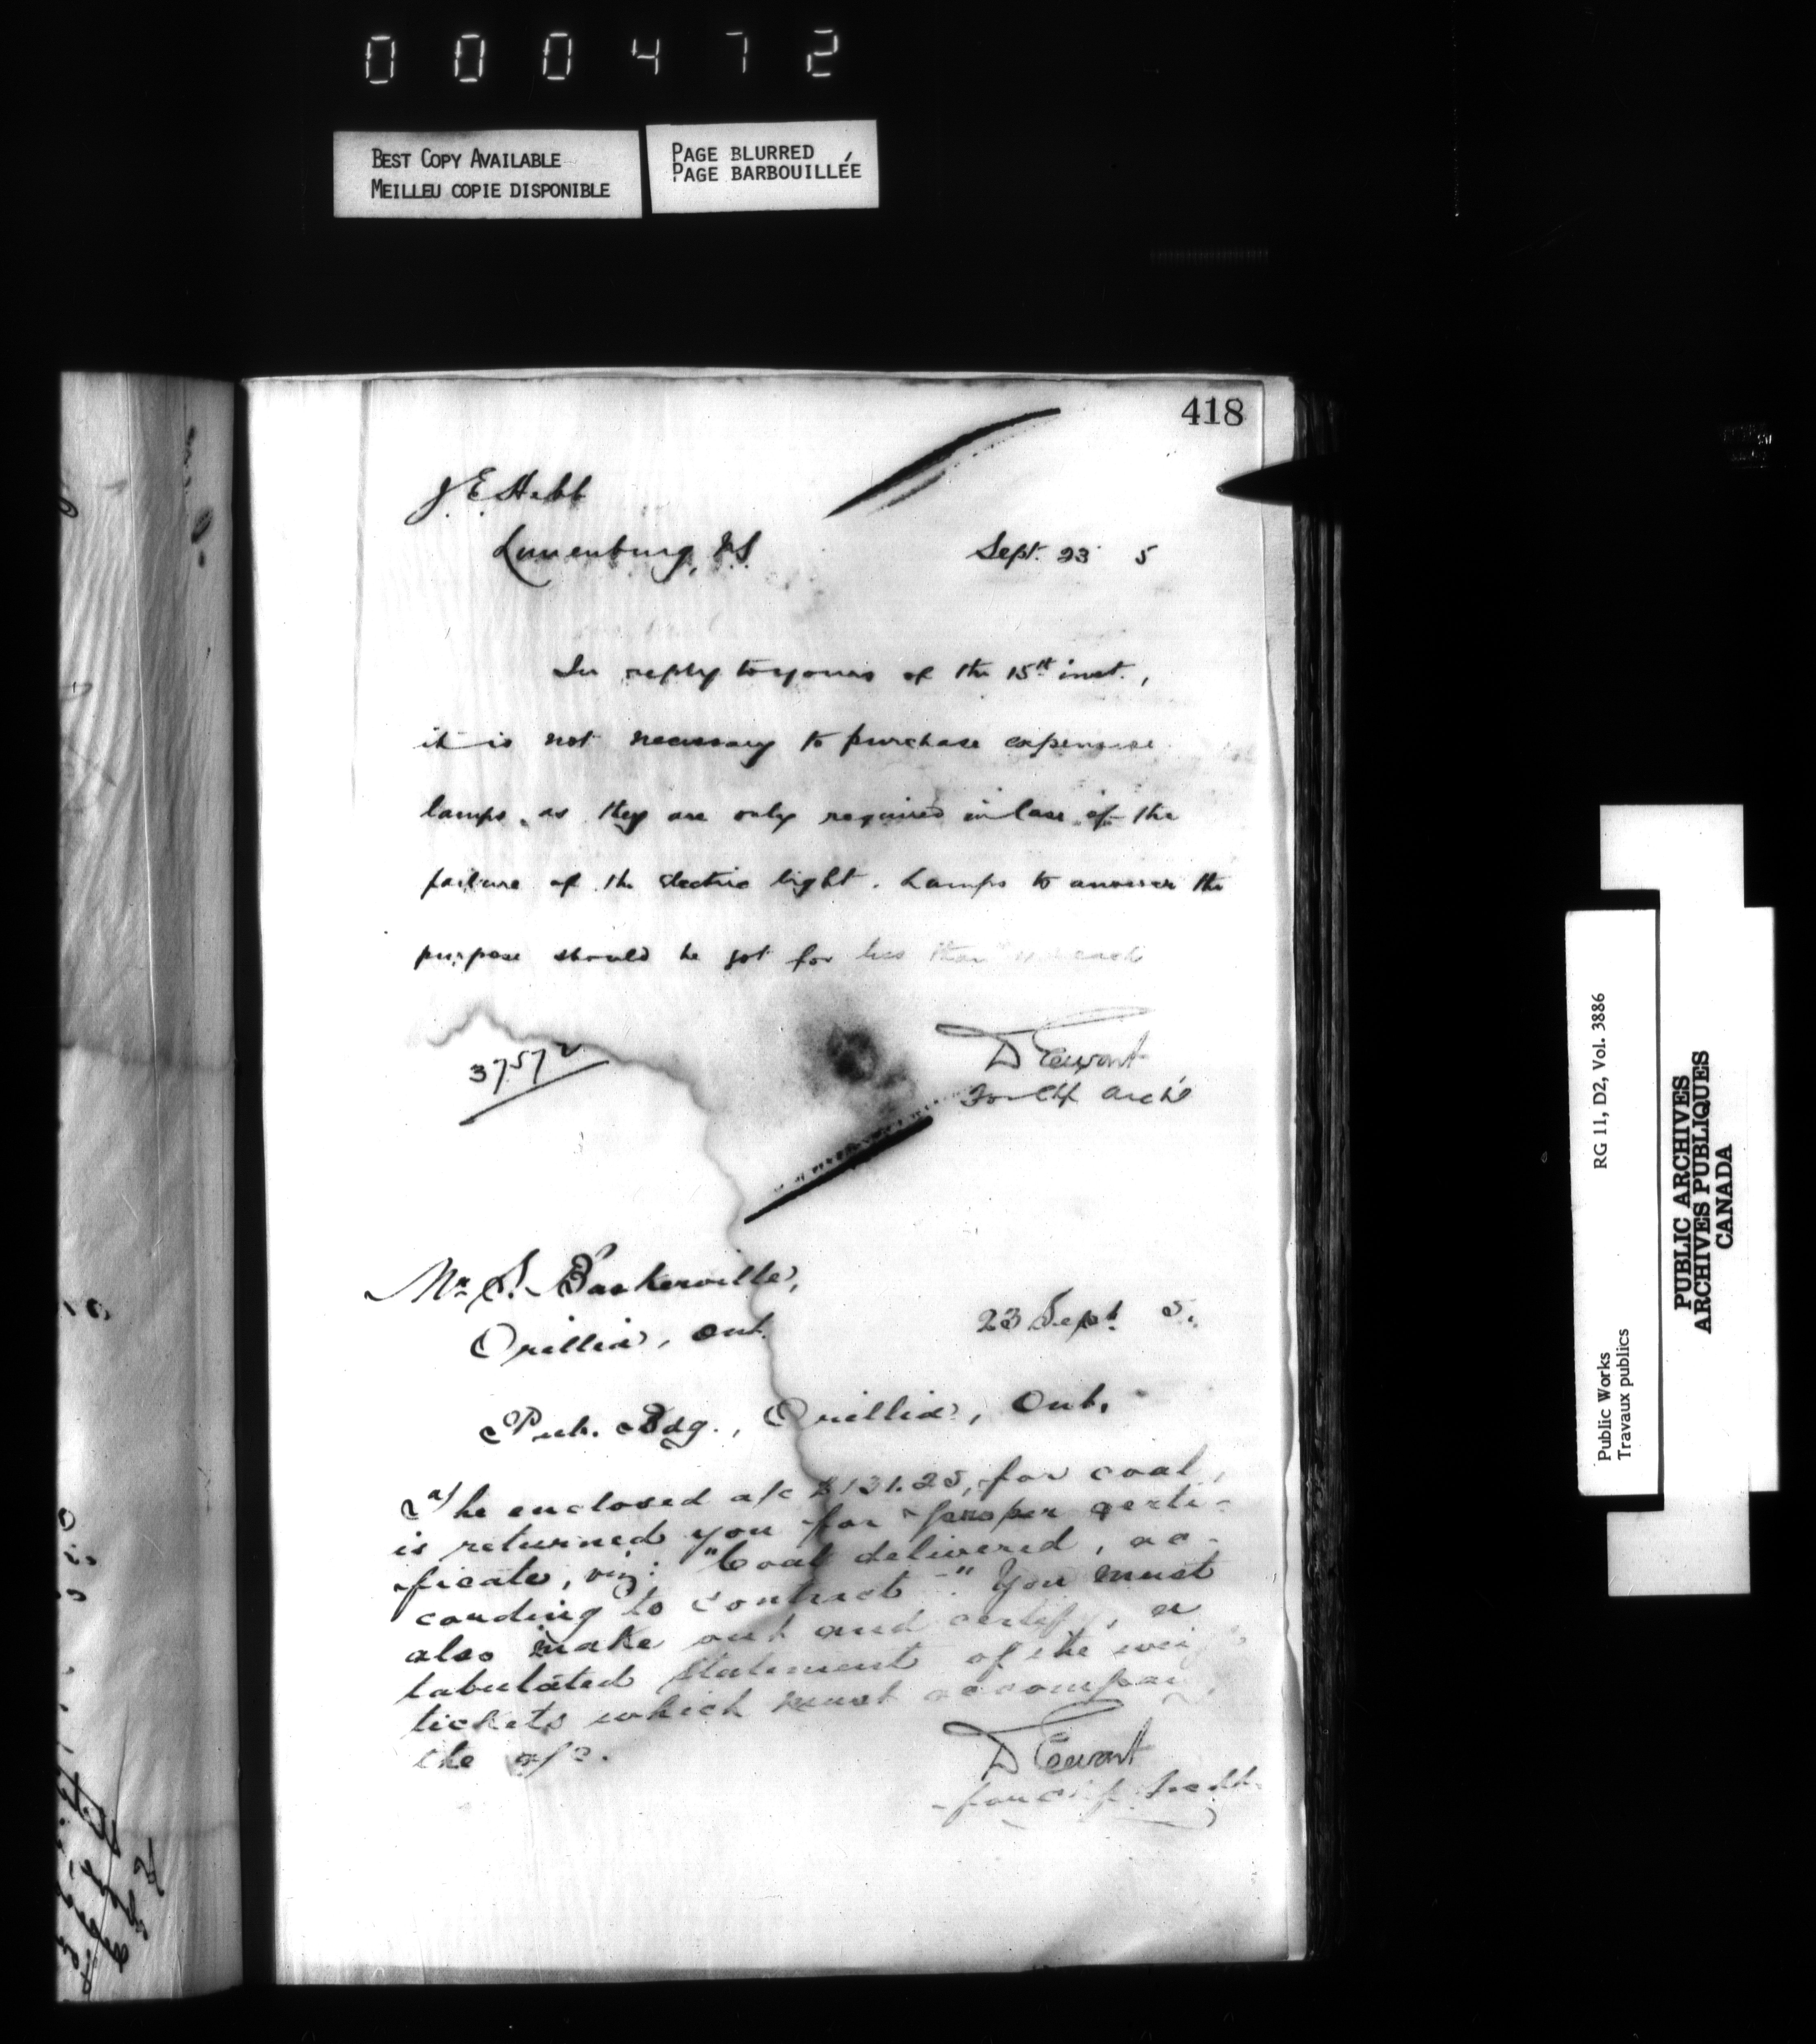 000472
BEST COPY AVAILABLE
MEILLEU COPIE DISPONIBLE
PAGE BLURRED
PAGE BARBOUILLÉE
418
J. E. Hebb
Lunenburg, N.S.
Sept. 23 5
In reply to yours of the 15th inst.,
it is not necessary to purchase expensive
lamps, as they are only required in case of the
failure of the electric light. Lamps to answer the
purpose should be got for less than each
37572
D Ewart
For Chf Archt
Mr. S. Baskerville,
Orillia, Ont.
23 Sept. 5.
Pub. Bdg., Orillia, Ont.
The enclosed a/c $131.25, for coal,
is returned you for proper certi-
ficate, viz: "Coal delivered, ac-
cording to contract." You must
also make out and certify, a
tabulated statement of the
tickets which must accompany
the a/c.
D Ewart
for Chf Archt.
Public Works
Travaux publics
RG 11, D2, Vol. 3886
PUBLIC ARCHIVES
ARCHIVES PUBLIQUES
CANADA